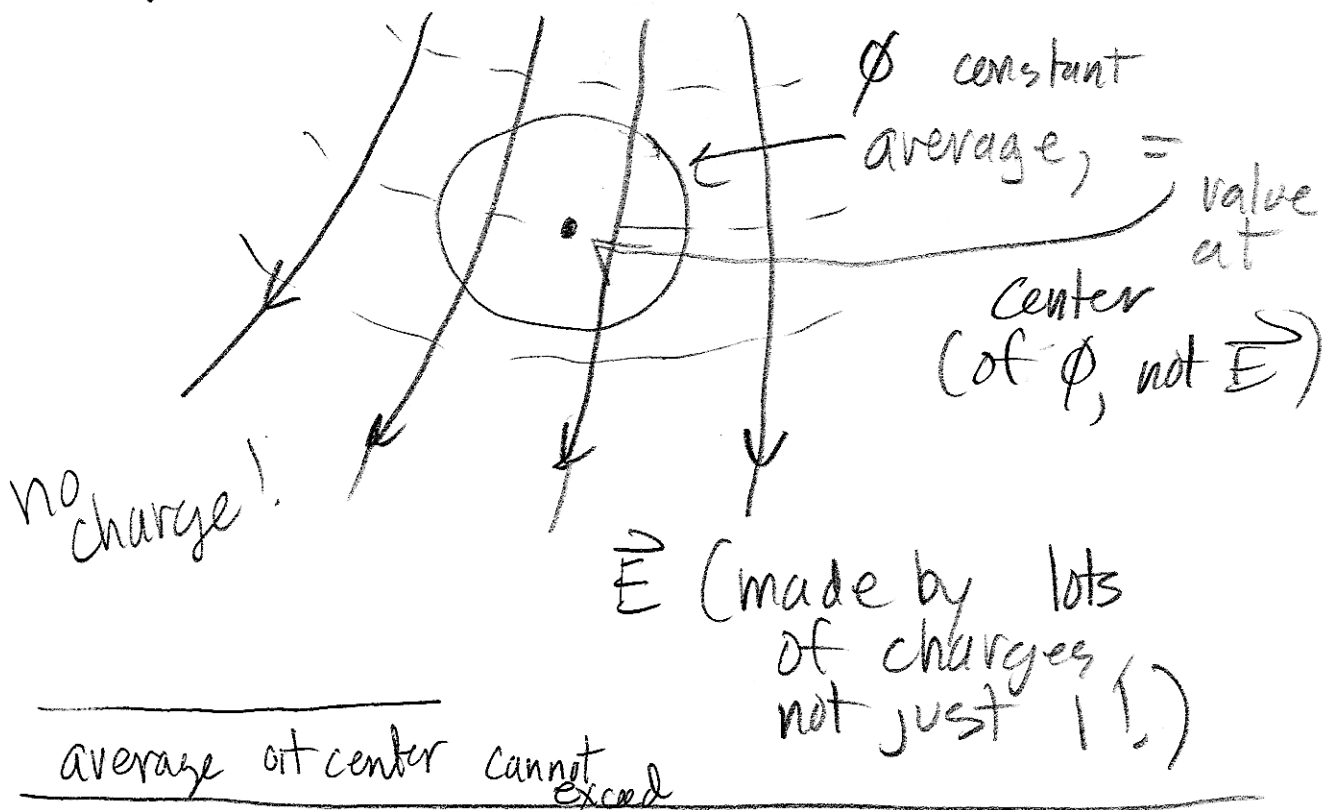 ϕ constant
average, =
value
at
center
(of ϕ, not E⃗)
no
charge!
E⃗ (made by lots
of charges
not just 1!)
average at center cannot
exceed